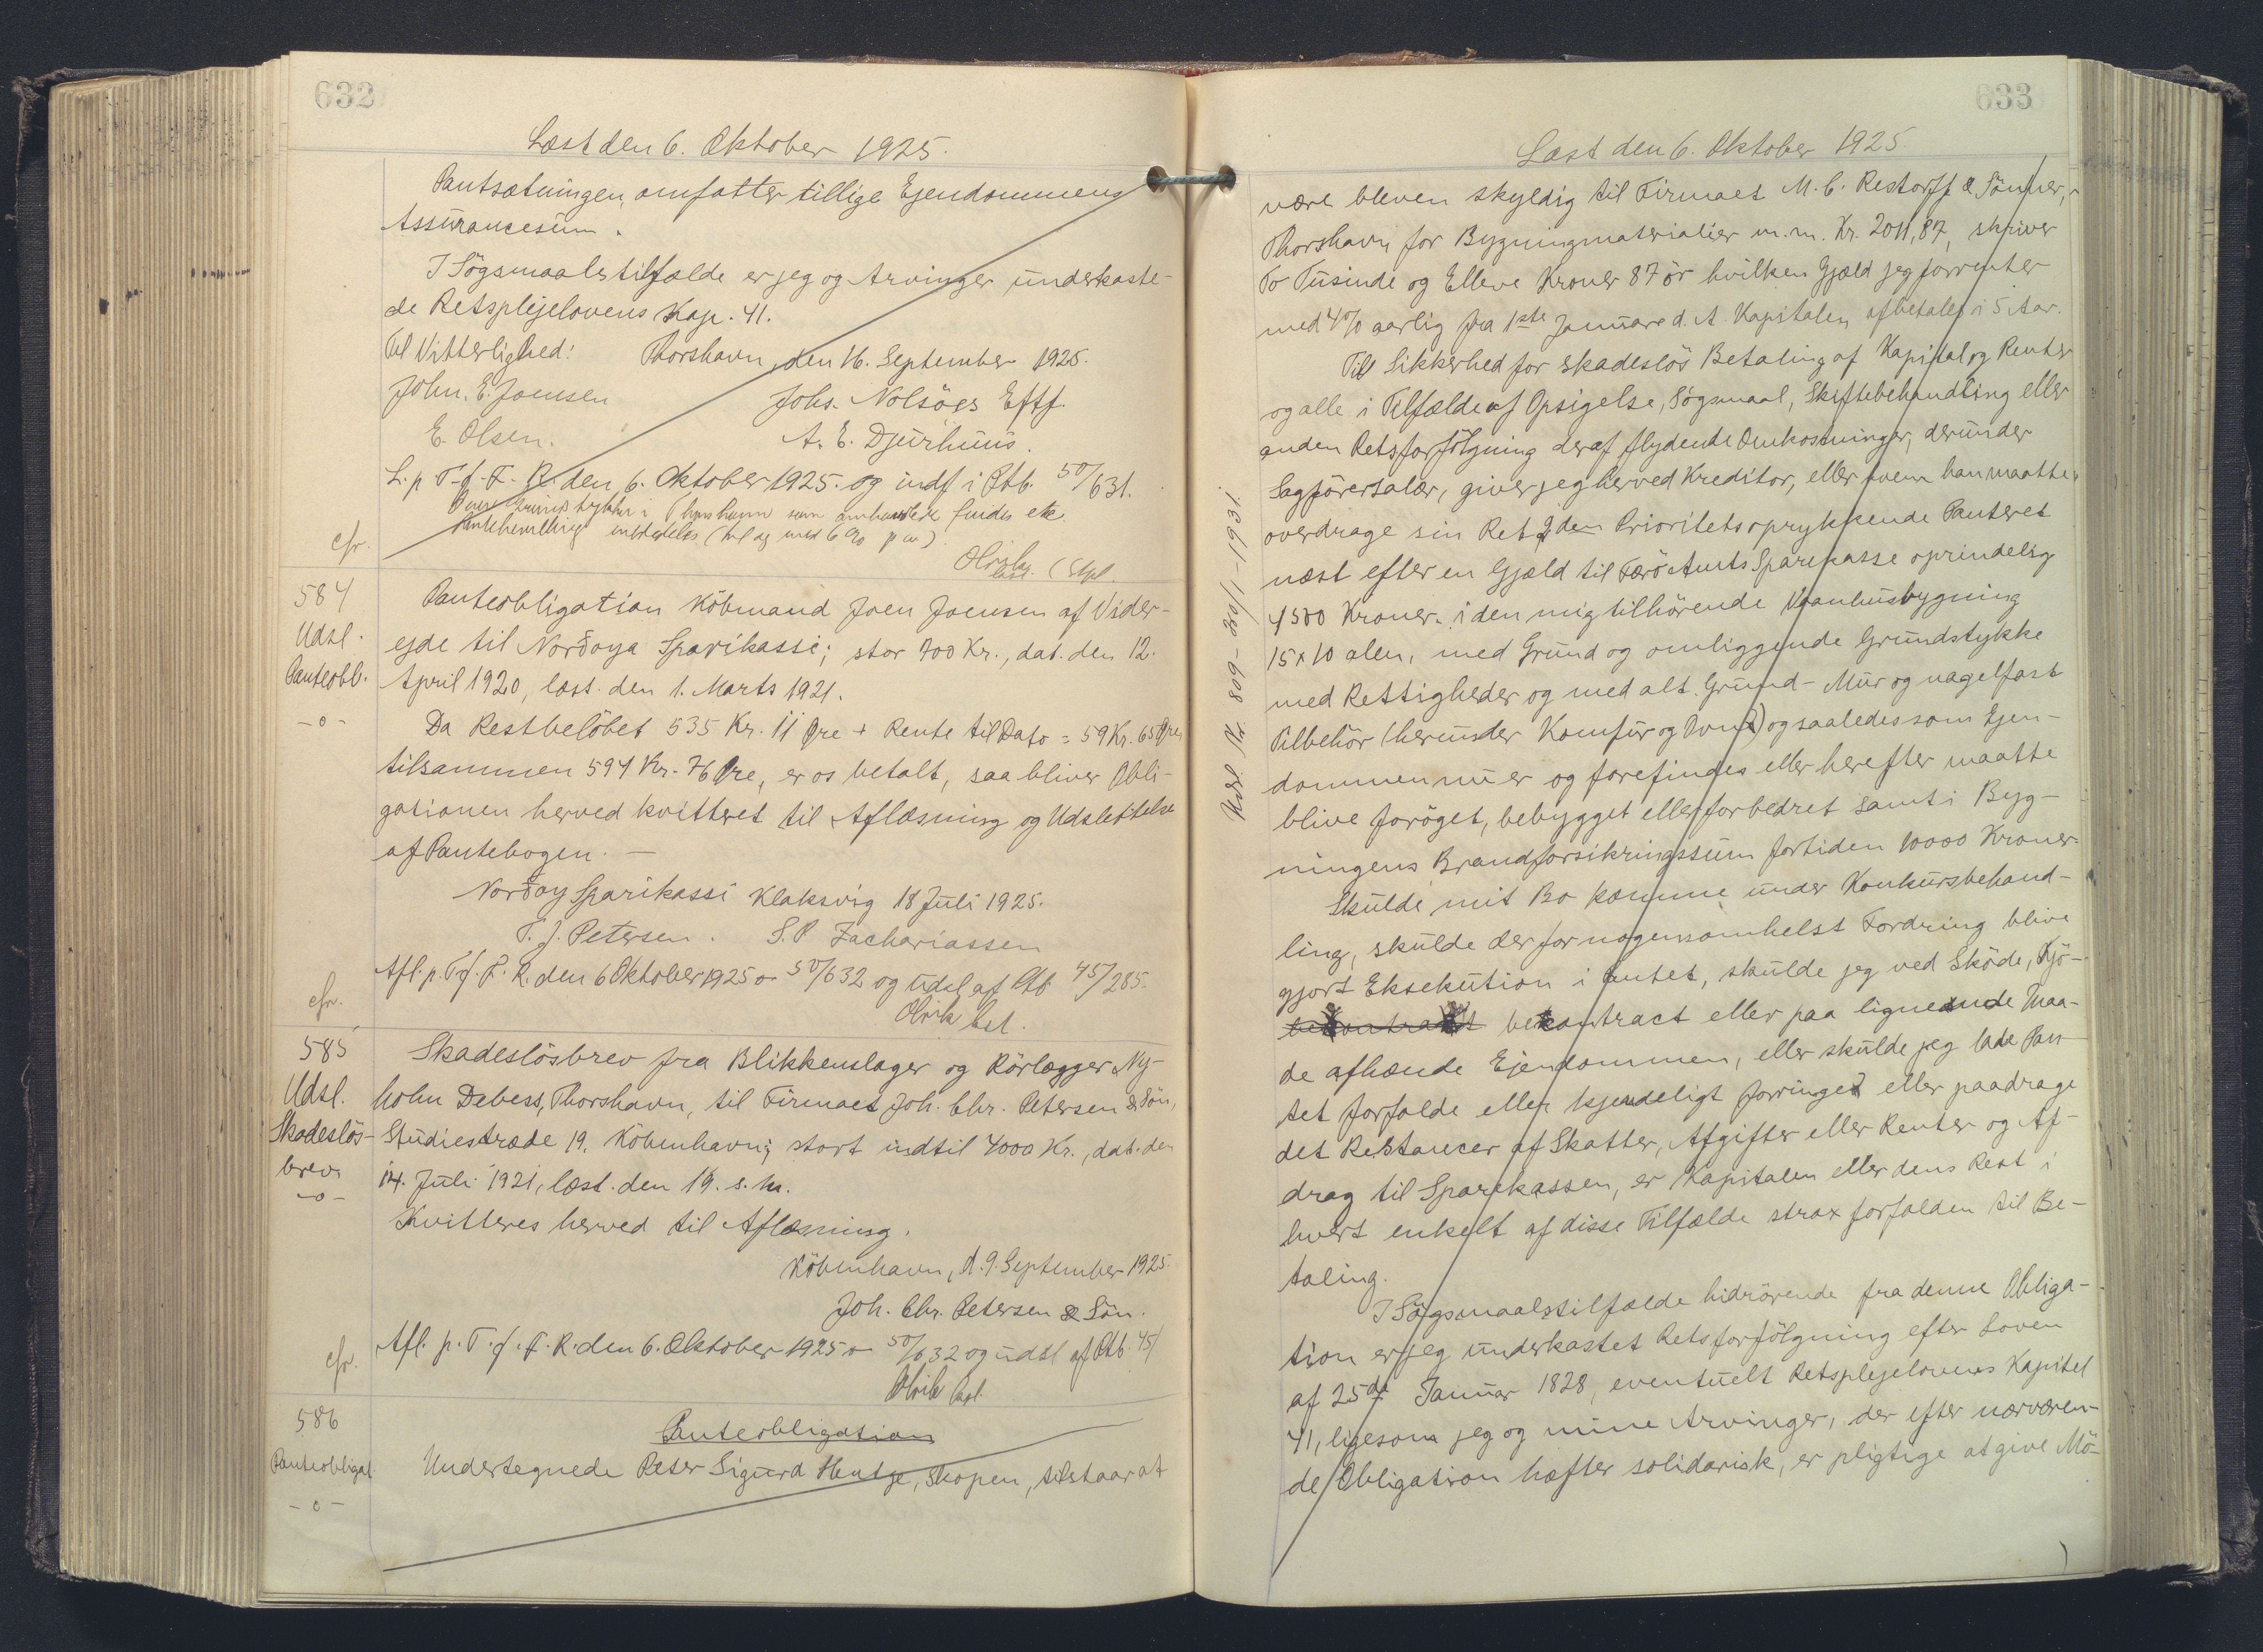 632
Læst den 6. Oktober 1925.
Pantsætningen omfatter tillige Ejendommens
Assürancesüm.
I Sögsmaalstilfælde er jeg og Arvinger ünderkaste-
de Retsplejelovens Kap. 41.
Til Vitterlighed: Thorshavn, den 16. September 1925.
John. E. Joensen Johs. Nolsöes Eftf.
E. Olsen. A. E. Djürhüüs.
L. p T. f. F. R. den 6. Oktober 1925. og indf i Ptb. 50/631.
cfr.
584
Udsl.
Panteobl.
-o-
Panteobligation Köbmand Joen Joensen af Vider-
ejde til Norðoya Sparikassi; stor 700 Kr., dat. den 12.
April 1920, læst. den 1. Marts 1921.
Da Restbelöbet 535 Kr. 11 Øre + Rente til Dato = 59 Kr. 65 Øre,
tilsammen 594 Kr. 76 Øre, er os betalt, saa bliver Obli-
gationen herved kvitteret til Aflæsning og Udslettelse
af Pantebogen. —
Norðoy Sparikassi Klaksvig 18 Jüli 1925.
T. J. Petersen. S. P Zachariassen
Afl. p. T. f. F. R. den 6 Oktober 1925 o 50/632 og üdsl af Ptb 45/285.
cfr.
585
Udsl.
Skadeslös-
brev
-o-
Skadeslösbrev fra Blikkenslager og Rörlægger Ny-
holm Debess, Thorshavn, til Firmaet Joh. Chr. Petersen & Sön,
Stüdiestræde 19. Köbenhavn; stort indtil 4000 Kr., dat. den
14. Jüli 1921, læst. den 19. s. m.
Kvitteres herved til Aflæsning.
Köbenhavn, d. 9. September 1925.
Joh. Chr. Petersen & Sön.
Afl. p. T. f. F. R. den 6. Oktober 1925 o 50/632 og üdsl af Ptb. 45/
cfr.
586
Panteobligat
-o-
Panteobligation
Undertegnede Peter Sigürd Hentze, Skopen, tilstaar at
633
Læst den 6. Oktober 1925.
være bleven skyldig til Firmaet M. C. Restorff & Sönner,
Thorshavn for Bygningmaterialier m.m. Kr. 2011,87, skriver
To Tüsinde og Elleve Kroner 87 ör hvilken Gjæld jeg forrenter
med 4% aarlig fra 1ste Janüar d. A. Kapitalen afbetales i 5 Aar.
Til Sikkerhed for skadeslös Betaling af Kapital og Renter
og alle i Tilfælde af Opsigelse, Sögsmaal, Skiftebehandling eller
anden Retsforfölgning deraf flydende Omkostninger, deründer
Sagförersalær, giver jeg herved Kreditor, eller hvem han maatte
overdrage sin Ret 2den Prioritets oprykkende Panteret
næst efter en Gjæld til Færö Amts Sparekasse oprindelig
4500 Kroner i den mig tilhörende Vaanhüsbygning
15 x 10 alen, med Gründ og omliggende Gründstykke
med Rettigheder og med alt. Gründ- Mür og nagelfast
Tilbehör (heründer Komfür og Ovne) og saaledes som Ejen-
dommen nü er og forefindes eller herefter maatte
blive foröget, bebygget eller forbedret samt i Byg-
ningens Brandforsikringssüm fortiden 10000 Kroner.
Skülde mit Bo komme ünder Konkürsbehand-
ling, skülde der for nogensomhelst Fordring blive
gjort Eksekütion i Pantet, skülde jeg ved Sköde, Kjö-
bekontrakt bekontract eller paa lignende Maa-
de afhænde Ejendommen, eller skülde jeg lade Pan-
tet forfalde eller kjendeligt forringes eller paadrage
det Restancer af Skatter, Afgifter eller Renter og Af-
drag til Sparekassen, er Kapitalen eller dens Rest i
hvert enkelt af disse Tilfælde strax forfalden til Be-
taling.
I Sögsmaalstilfælde hidrörende fra denne Obliga-
tion er jeg ünderkastet Retsforfölgning efter Loven
af 25de Janüar 1828, eventüelt Retsplejelovens Kapitel
41, ligesom jeg og mine Arvinger, der efter nærværen-
de Obligation hæfter solidarisk, er pligtige at give Mö-
Udsl. Pk. 809-30/1-1931.